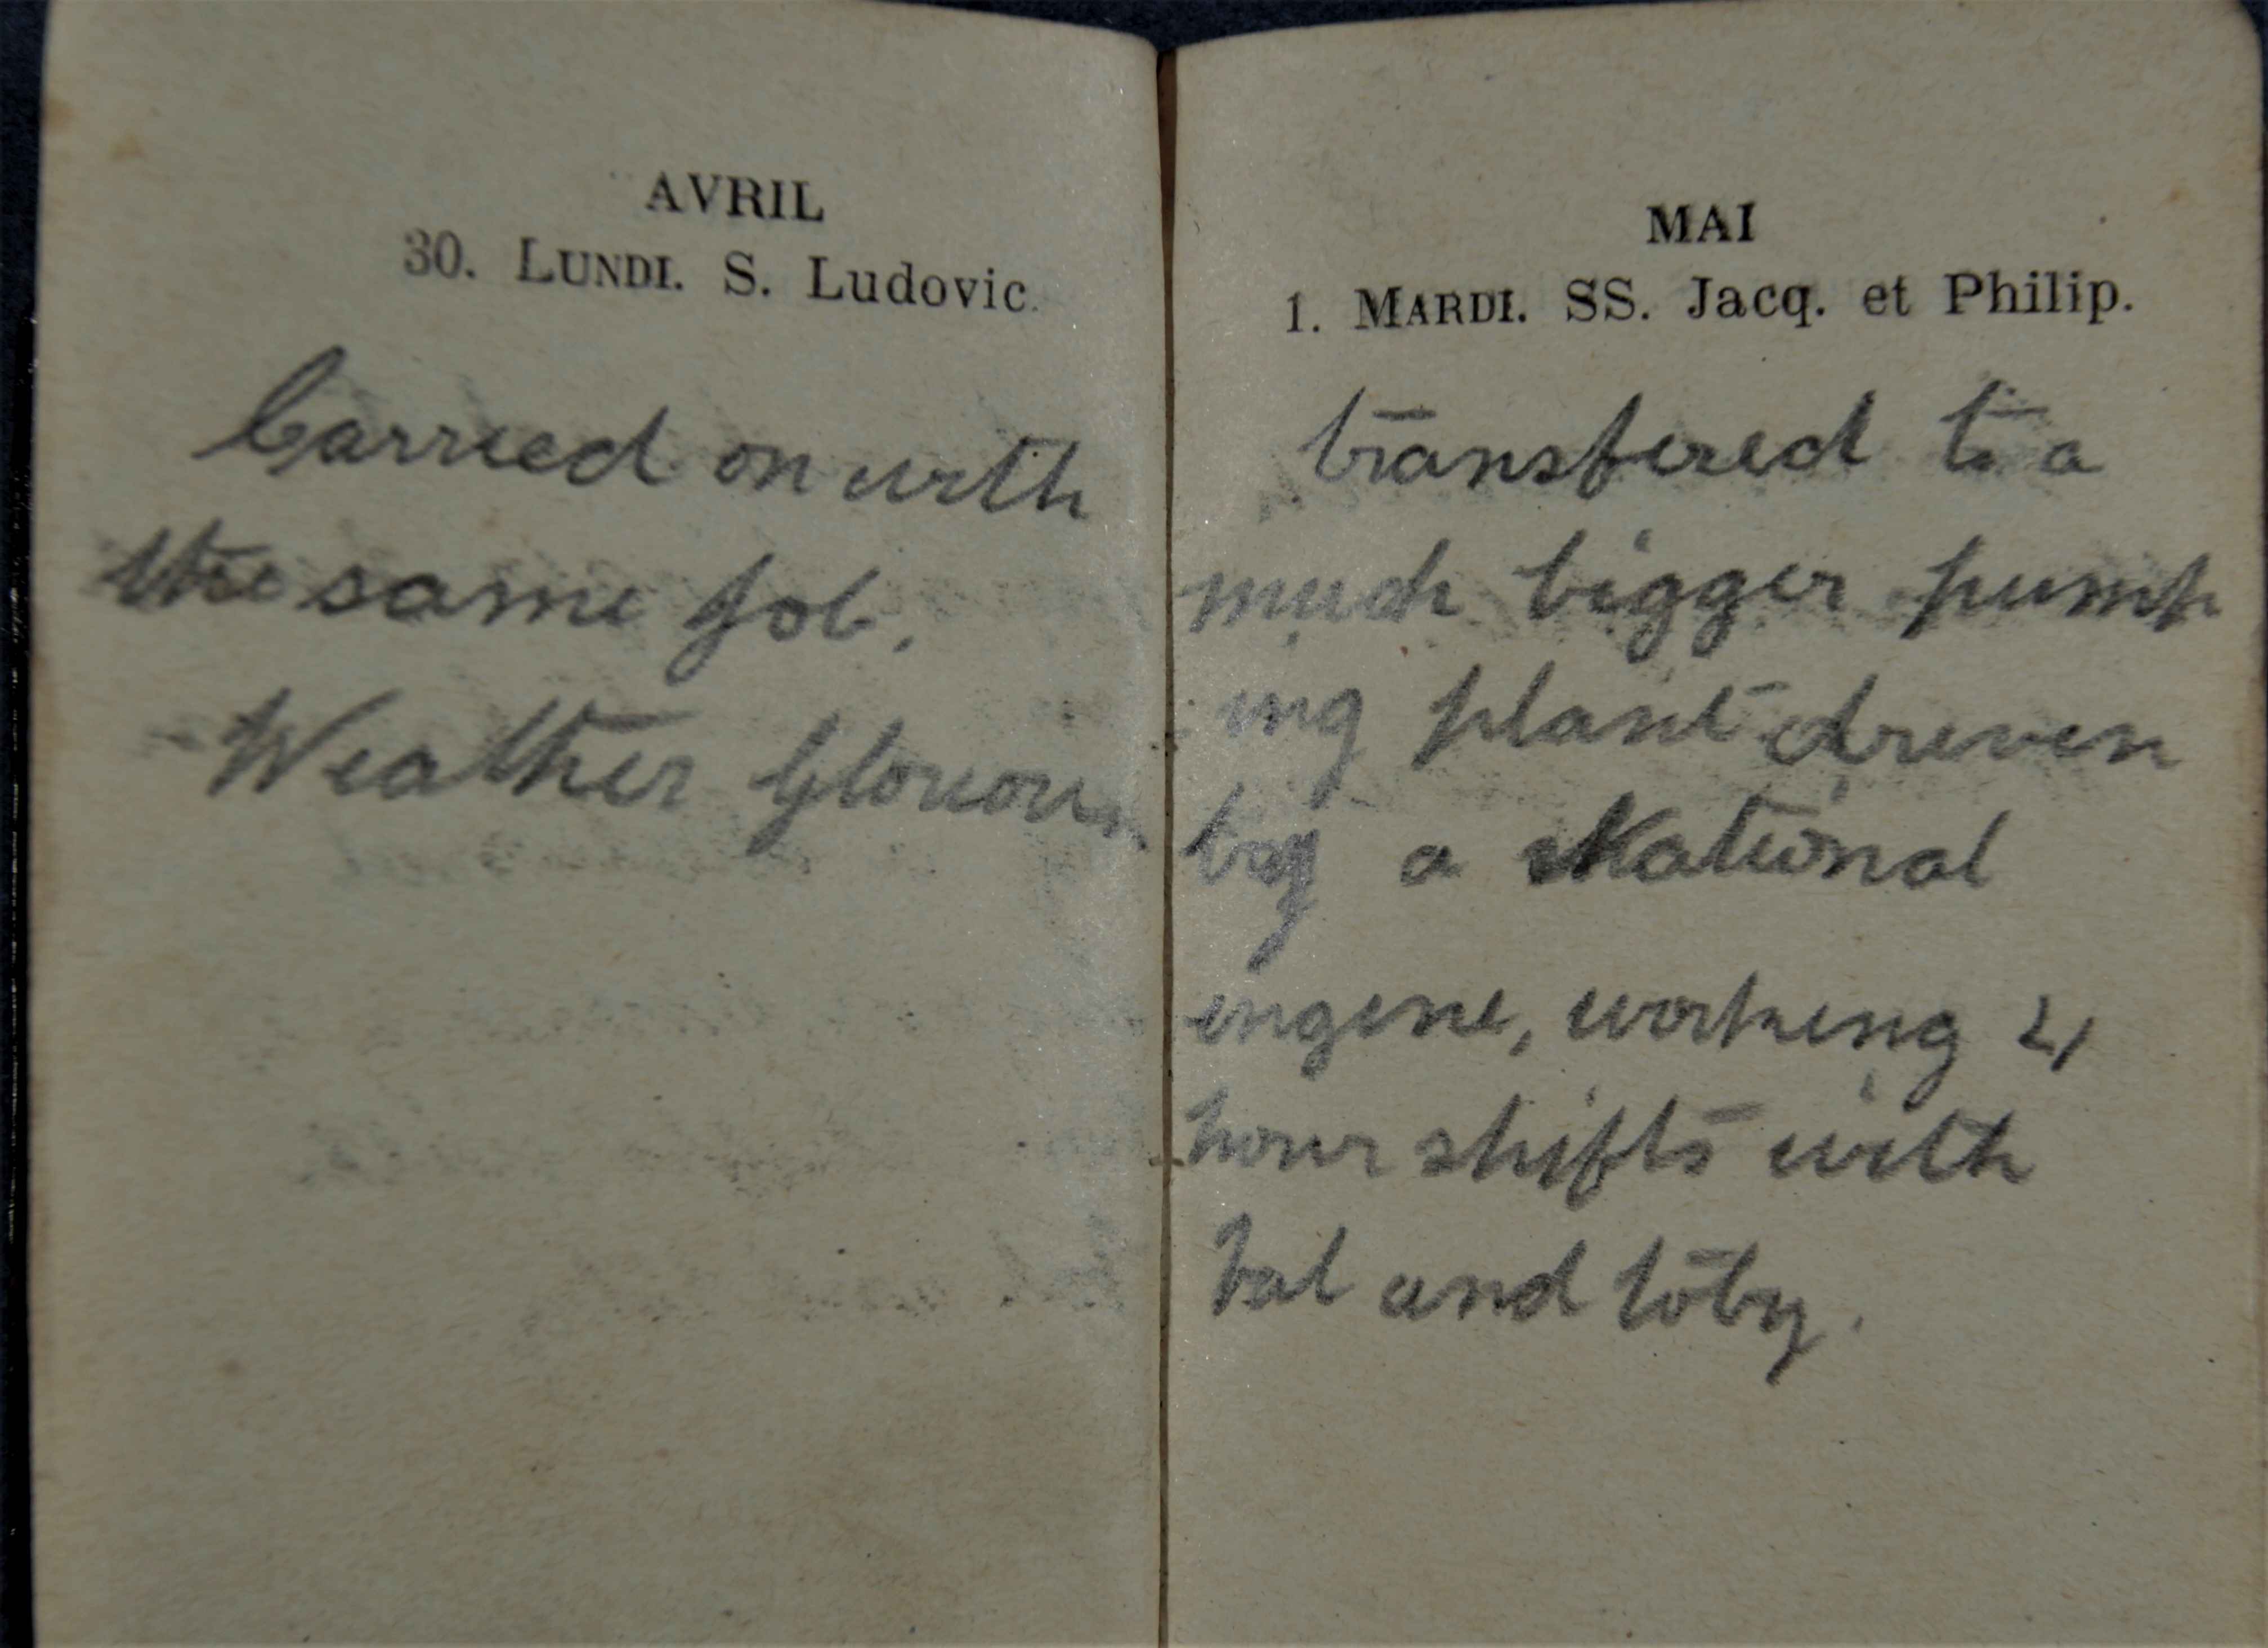 AVRIL
30. LUNDI. S. Ludovic.
Carried on with
the same job.
Weather Glorious
MAI
1. MARDI. SS. Jacq. et Philip.
transfered to a
much bigger pump
ing plant driven
by a National
engine, working 4
hour shifts with
Val and Toby.